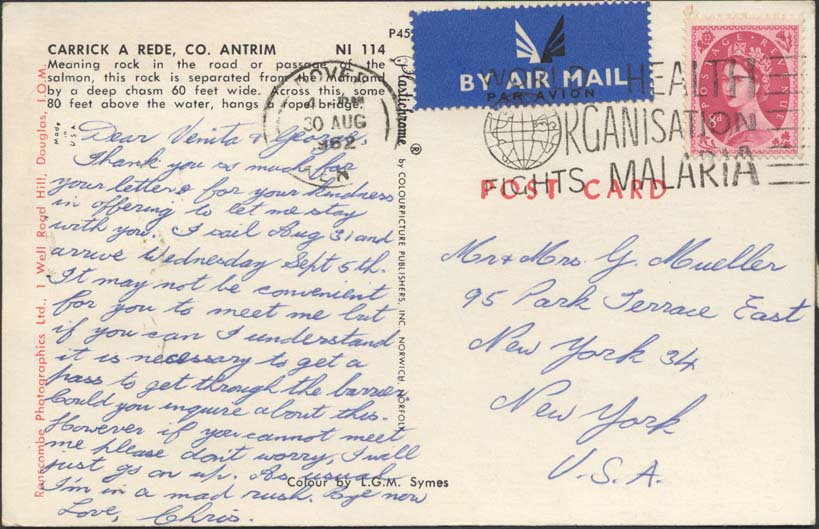 CARRICK A REDE, CO. ANTRIM NI 114
Meaning rock in the road or passage of the
salmon, this rock is separated from the Mainland
by a deep chasm 60 feet wide. Across this, some
80 feet above the water, hangs a rope bridge.
P45
Made
in
U.S.A.
Ranscombe Photographics Ltd., 1 Well Road Hill, Douglas, I.O.M.
Dear Venita & George,
Thank you so much for
your letter & for your kindness
in offering to let me stay
with you. I sail Aug 31 and
arrive Wednesday Sept 5th.
It may not be convenient
for you to meet me but
if you can I understand
it is necessary to get a
pass to get through the barrier.
Could you inquire about this.
However if you cannot meet
me please don't worry, I will
just go on up. As usual
I'm in a mad rush. Bye now
Love, Chris.
Colour by L.G.M. Symes
Plastichrome ® by COLOURPICTURE PUBLISHERS, INC. NORWICH, NORFOLK
30 AUG
1962
BY AIR MAIL
PAR AVION
POSTAGE REVENUE
8d
WORLD HEALTH
ORGANISATION
FIGHTS MALARIA
POST CARD
Mr & Mrs G. Mueller
95 Park Terrace East
New York 34
New York
U.S.A.